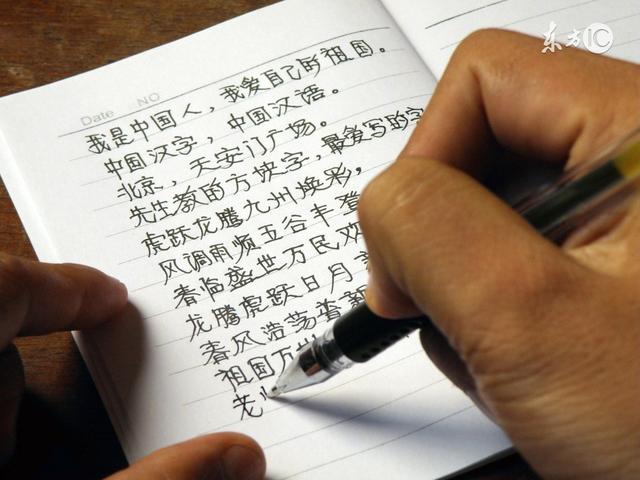 东方IC
Date NO
我是中国人，我爱自己的祖国。
中国汉字，中国汉语。
北京，天安门广场。
先生教的方块字，最爱写的字
虎跃龙腾九州焕彩，
风调雨顺五谷丰登
春临盛世万民欢
龙腾虎跃日月
春风浩荡普
祖国万
老